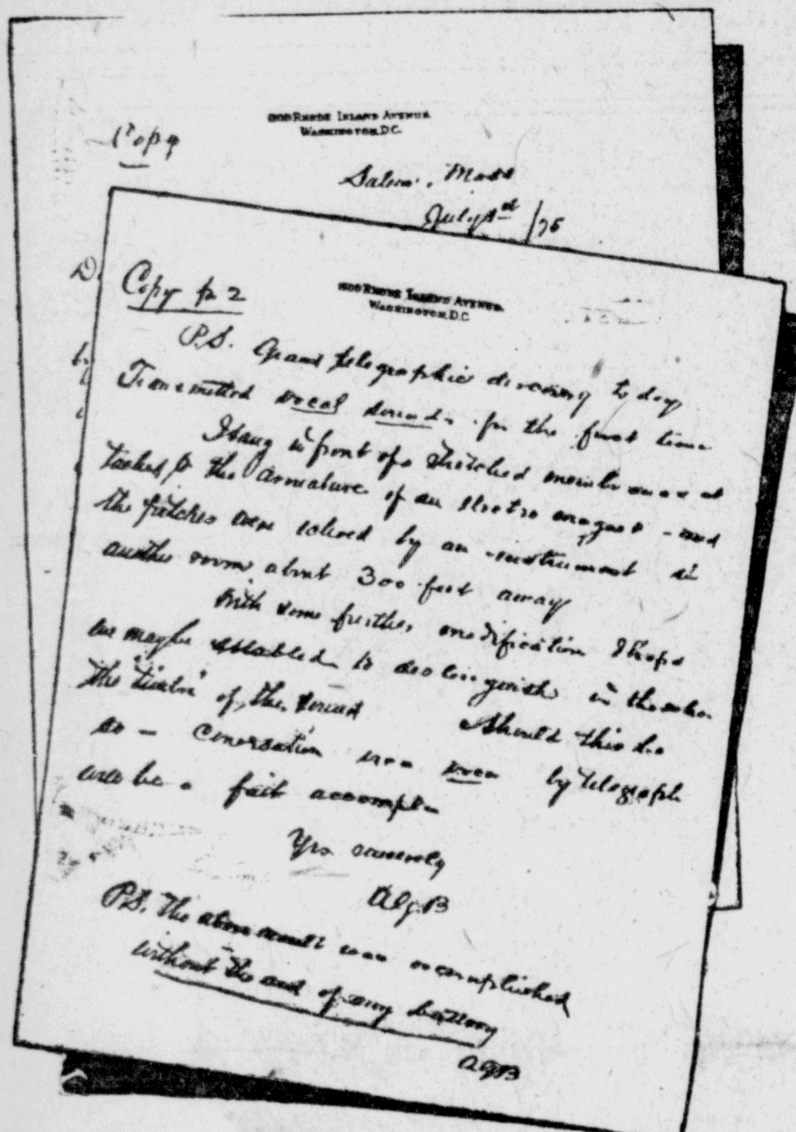 Copy
1800 RHODE ISLAND AVENUE
WASHINGTON D.C.
Salem, Mass
July 1st /75
D.
Copy p 2
1800 RHODE ISLAND AVENUE
WASHINGTON D.C.
P.S. Grand telegraphic discovery today
Transmitted vocal sounds for the first time
I sang in front of a stretched membrane at
tached to the armature of an electro magnet - and
the pitches were echoed by an instrument in
another room about 300 feet away
With some further modification I hope
we may be enabled to distinguish in the echo
the "timbre" of the sound Should this be
so - conversation viva voce by telegraph
will be a fait accompli
Yrs sincerely
A.G.B
P.S. The above result was accomplished
without the aid of any battery
AGB